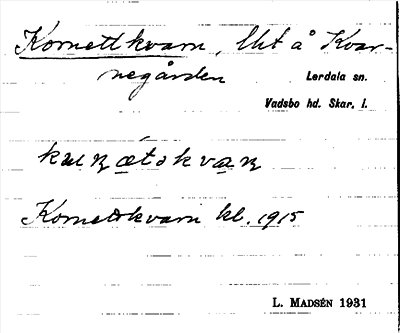 Kornettkvarn, lht å Kvar-
negården
Lerdala sn.
Vadsbo hd. Skar. l.
Kornettkvarn kl. 1915
L. MADSÉN 1931